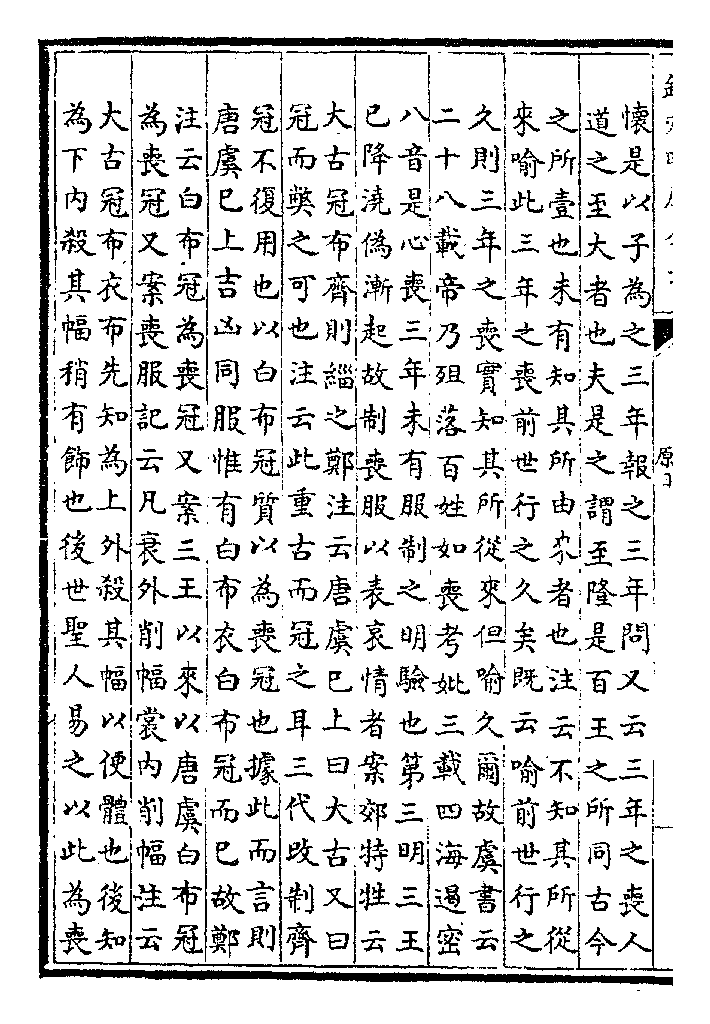 懷是以子為之三年報之三年問又云三年之喪人
道之至大者也夫是之謂至隆是百王之所同古今
之所壹也未有知其所由來者也注云不知其所從
來喻此三年之喪前世行之久矣既云喻前世行之
久則三年之喪實知其所從來但喻久爾故虞書云
二十八載帝乃殂落百姓如喪考妣三載四海遏密
八音是心喪三年未有服制之明驗也第三明三王
已降澆偽漸起故制喪服以表哀情者案郊特牲云
大古冠布齊則緇之鄭注云唐虞已上曰大古又曰
冠而獘之可也注云此重古而冠之耳三代改制齊
冠不復用也以白布冠質以為喪冠也據此而言則
唐虞已上吉凶同服惟有白布衣白布冠而已故鄭
注云白布冠為喪冠又案三王以來以唐虞白布冠
為喪冠又案喪服記云凡衰外削幅裳內削幅注云
大古冠布衣布先知為上外殺其幅以便體也後知
為下內殺其幅稍有飾也後世聖人易之以此為喪